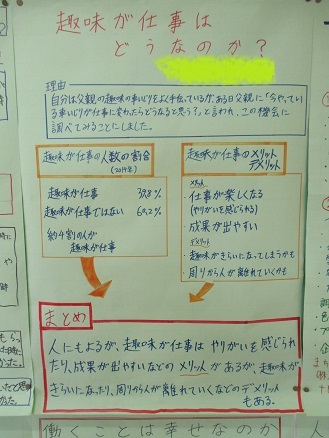 趣味が仕事は
どうなのか?
理由
自分は父親の趣味の車いじりをよく手伝っているが、ある日父親に「今やっている
車いじりが仕事に変わったらどうなると思う?」と言われ、この機会に
調べてみることにしました。
趣味が仕事の人数の割合
(2014年)
趣味が仕事 39.8%
趣味が仕事ではない 60.2%
約4割の人が
趣味が仕事
趣味が仕事のメリット
デメリット
メリット
仕事が楽しくなる
(やりがいを感じられる)
成果が出やすい
デメリット
趣味がきらいになってしまうかも
周りから人が離れていくかも
まとめ
人にもよるが、趣味が仕事は やりがいを感じられ
たり、成果が出やすいなどの メリット があるが、趣味が
きらいになったり、周りから人が離れていくなどの デメリット
もある。
働くことは幸せなのか